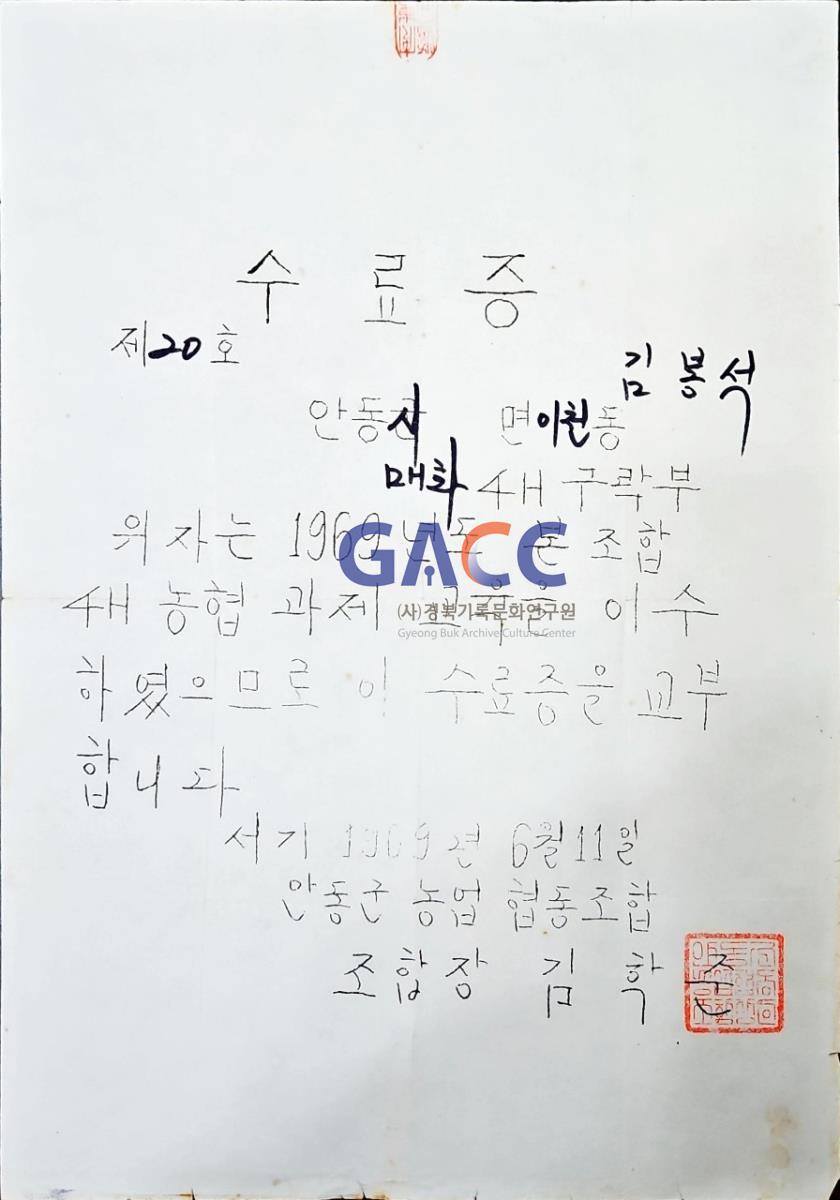 수 료 증
제20호
김 봉 석
안동시 면이천동
매화 4H 구락부
위 자는 1969년도 본 조합
4H 농협 과제 교육을 이수
하였으므로 이 수료증을 교부
합니다
서기 1969년 6월11일
안동군 농업 협동조합
조합장 김 학 준
GACC
(사)경북기록문화연구원
Gyeong Buk Archive Culture Center